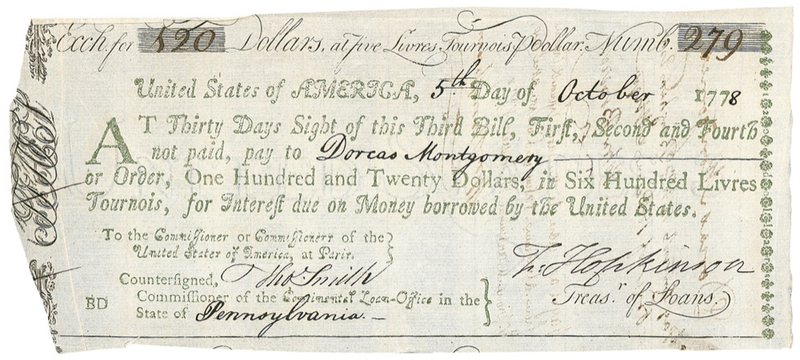 Exch. for 120 Dollars, at five Livres Tournois ℔ Dollar. Numb. 279
United States of AMERICA, 5th Day of October 1778
AT Thirty Days Sight of this Third Bill, First, Second and Fourth
not paid, pay to Dorcas Montgomery
or Order, One Hundred and Twenty Dollars, in Six Hundred Livres
Tournois, for Interest due on Money borrowed by the United States.
To the Commissioner or Commissioners of the
United States of America, at Paris.
Countersigned, Tho Smith
BD Commissioner of the Continental Loan-Office in the
State of Pennsylvania.
Hopkinson
Treasr. of Loans.